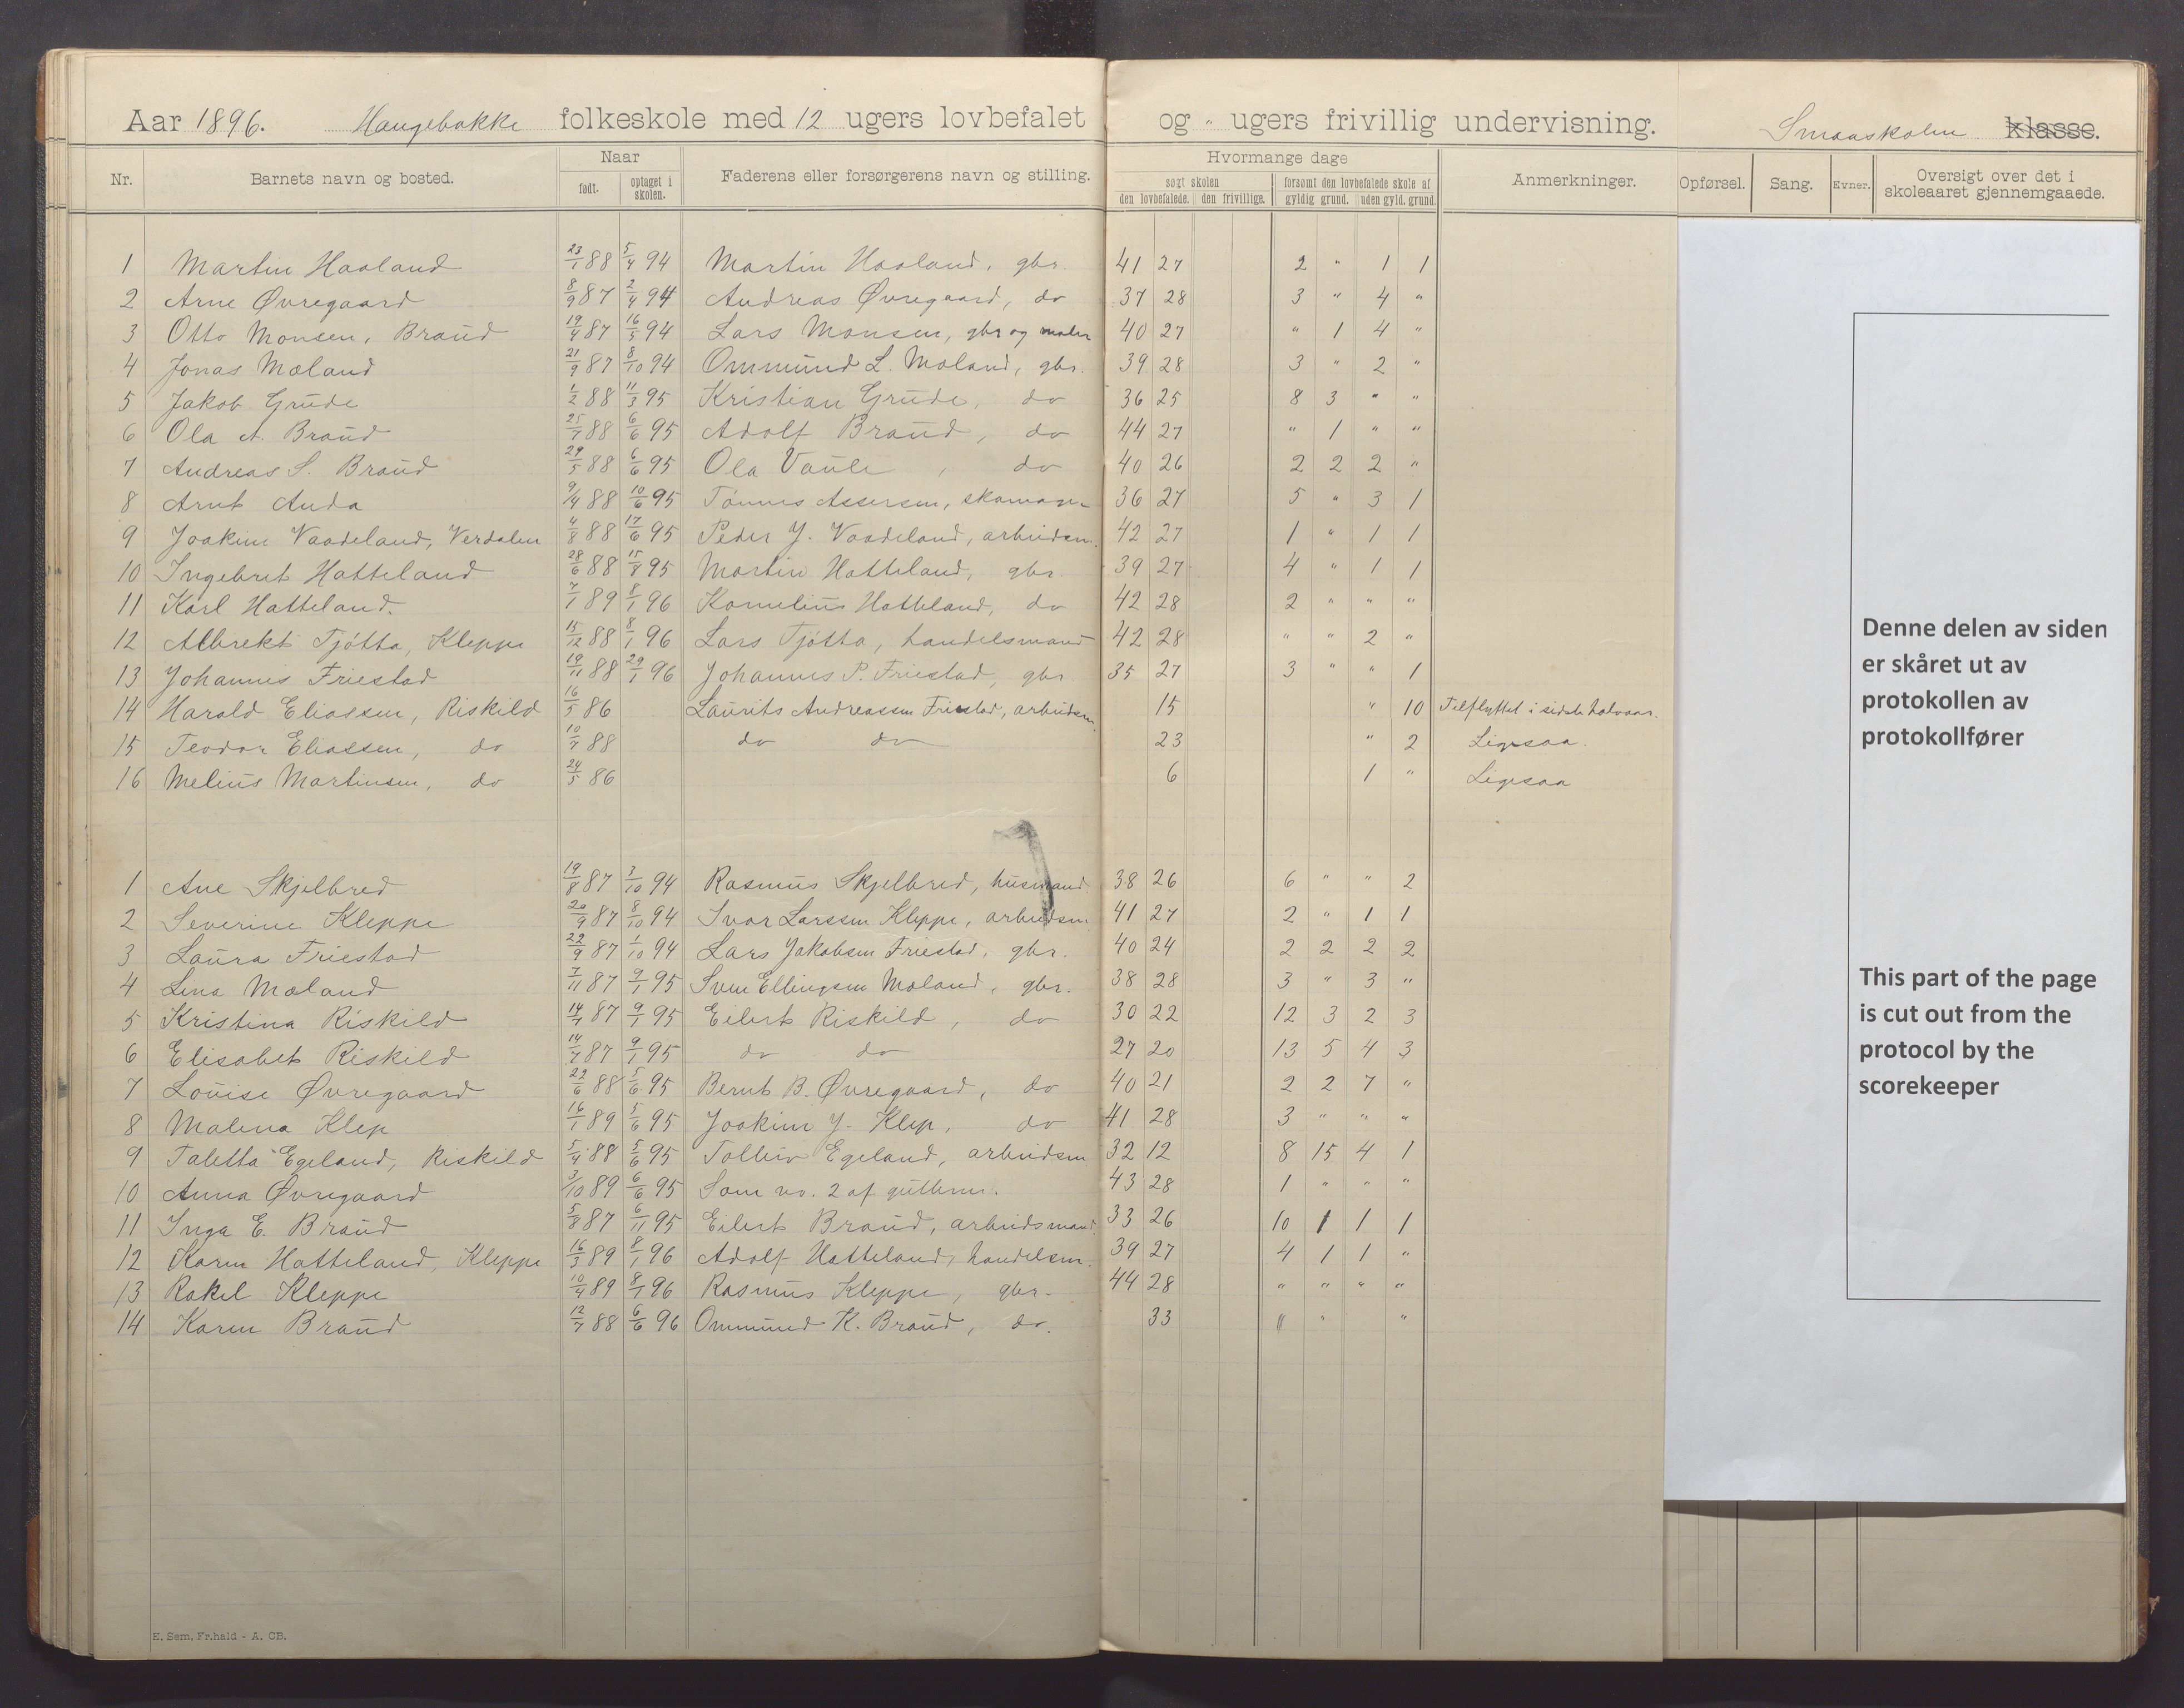 Aar 1896. Haugebakke folkeskole med 12 ugers lovbefalet og " ugers frivillig undervisning. Smaaskolen klasse.
Nr. Barnets navn og bosted. Naar født. optaget i skolen. Faderens eller forsørgerens navn og stilling. Hvormange dage søgt skolen den lovbefalede. den frivillige. forsømt den lovbefalede skole af gyldig grund. uden gyld. grund. Anmerkninger. Opførsel. Sang. Evner. Oversigt over det i skoleaaret gjennemgaaede.
1 Martin Haaland 23/1 88 5/4 94 Martin Haaland, gbr. 41 27 2 " 1 1
2 Arne Øvregaard 8/9 87 2/4 94 Andreas Øvregaard, do 37 28 3 " 4 "
3 Otto Monsen, Braud 19/4 87 16/5 94 Lars Monsen, gbr og maler 40 27 " 1 4 "
4 Jonas Mæland 21/9 87 8/10 94 Ommund L. Mæland, gbr. 39 28 3 " 2 "
5 Jakob Grude 1/2 88 11/3 95 Kristian Grude, do 36 25 8 3 " "
6 Ola A. Braud 25/7 88 6/6 95 Adolf Braud, do 44 27 " 1 " "
7 Andreas S. Braud 29/5 88 6/6 95 Ola Vaule, do 40 26 2 2 2 "
8 Arnt Anda 9/4 88 10/6 95 Tønnes Assersen, skomager 36 27 5 " 3 1
9 Joakim Vaadeland, Verdalen 4/8 88 17/6 95 Peder J. Vaadeland, arbeidsm. 42 27 1 " 1 1
10 Ingebret Hatteland 28/6 88 15/8 95 Martin Hatteland, gbr 39 27 4 " 1 1
11 Karl Hatteland. 7/1 89 8/1 96 Kornelius Hatteland, do 42 28 2 " " "
12 Albrekt Tjøtta, Kleppe 15/12 88 8/1 96 Lars Tjøtta, handelsmand 42 28 " " 2 "
13 Johannes Friestad 19/11 88 29/1 96 Johannes P. Friestad, gbr 35 27 3 " " 1
14 Harald Eliassen, Riskild 16/5 86 Laurits Andreassen Friestad, arbeidsm. 15 " 10 Tilflyttet i sidste halvaar.
15 Teodor Eliassen, do 10/7 88 do do 23 " 2 Ligesaa.
16 Melius Martinsen, do 24/5 86 6 1 " Ligesaa
1 Ane Skjelbred 19/8 87 3/10 94 Rasmus Skjelbred, husmand. 38 26 6 " " 2
2 Severine Kleppe 20/9 87 8/10 94 Ivar Larssen Kleppe, arbeidsm 41 27 2 " 1 1
3 Laura Friestad 22/9 87 1/10 94 Lars Jakobsen Friestad, gbr. 40 24 2 2 2 2
4 Lena Mæland 7/11 87 9/1 95 Sven Ellingsen Mæland, gbr. 38 28 3 " 3 "
5 Kristina Riskild 14/7 87 9/1 95 Eilert Riskild, do 30 22 12 3 2 3
6 Elisabet Riskild 14/7 87 9/1 95 do do 27 20 13 5 4 3
7 Louise Øvregaard 22/6 88 5/6 95 Bernt B. Øvregaard, do 40 21 2 2 7 "
8 Malena Klep 16/1 89 5/6 95 Joakim J. Klep, do 41 28 3 " " "
9 Taletta Egeland, Riskild 5/4 88 5/6 95 Tolleiv Egeland, arbeidsm 32 12 8 15 4 1
10 Anna Øvregaard 3/10 89 6/6 95 Som no. 2 af gutterne. 43 28 1 " " "
11 Inga E. Braud 5/8 87 6/11 95 Eilert Braud, arbeidsmand 33 26 10 1 1 1
12 Karen Hatteland, Kleppe 16/3 89 8/1 96 Adolf Hatteland, handelsm. 39 27 4 1 1 "
13 Rakel Kleppe 10/4 89 8/1 96 Rasmus Kleppe, gbr. 44 28 " " " "
14 Karen Braud 12/7 88 6/6 96 Ommund K. Braud, do. 33 " " "
E. Sem, Fr.hald - A. CB.
Denne delen av siden
er skåret ut av
protokollen av
protokollfører
This part of the page
is cut out from the
protocol by the
scorekeeper